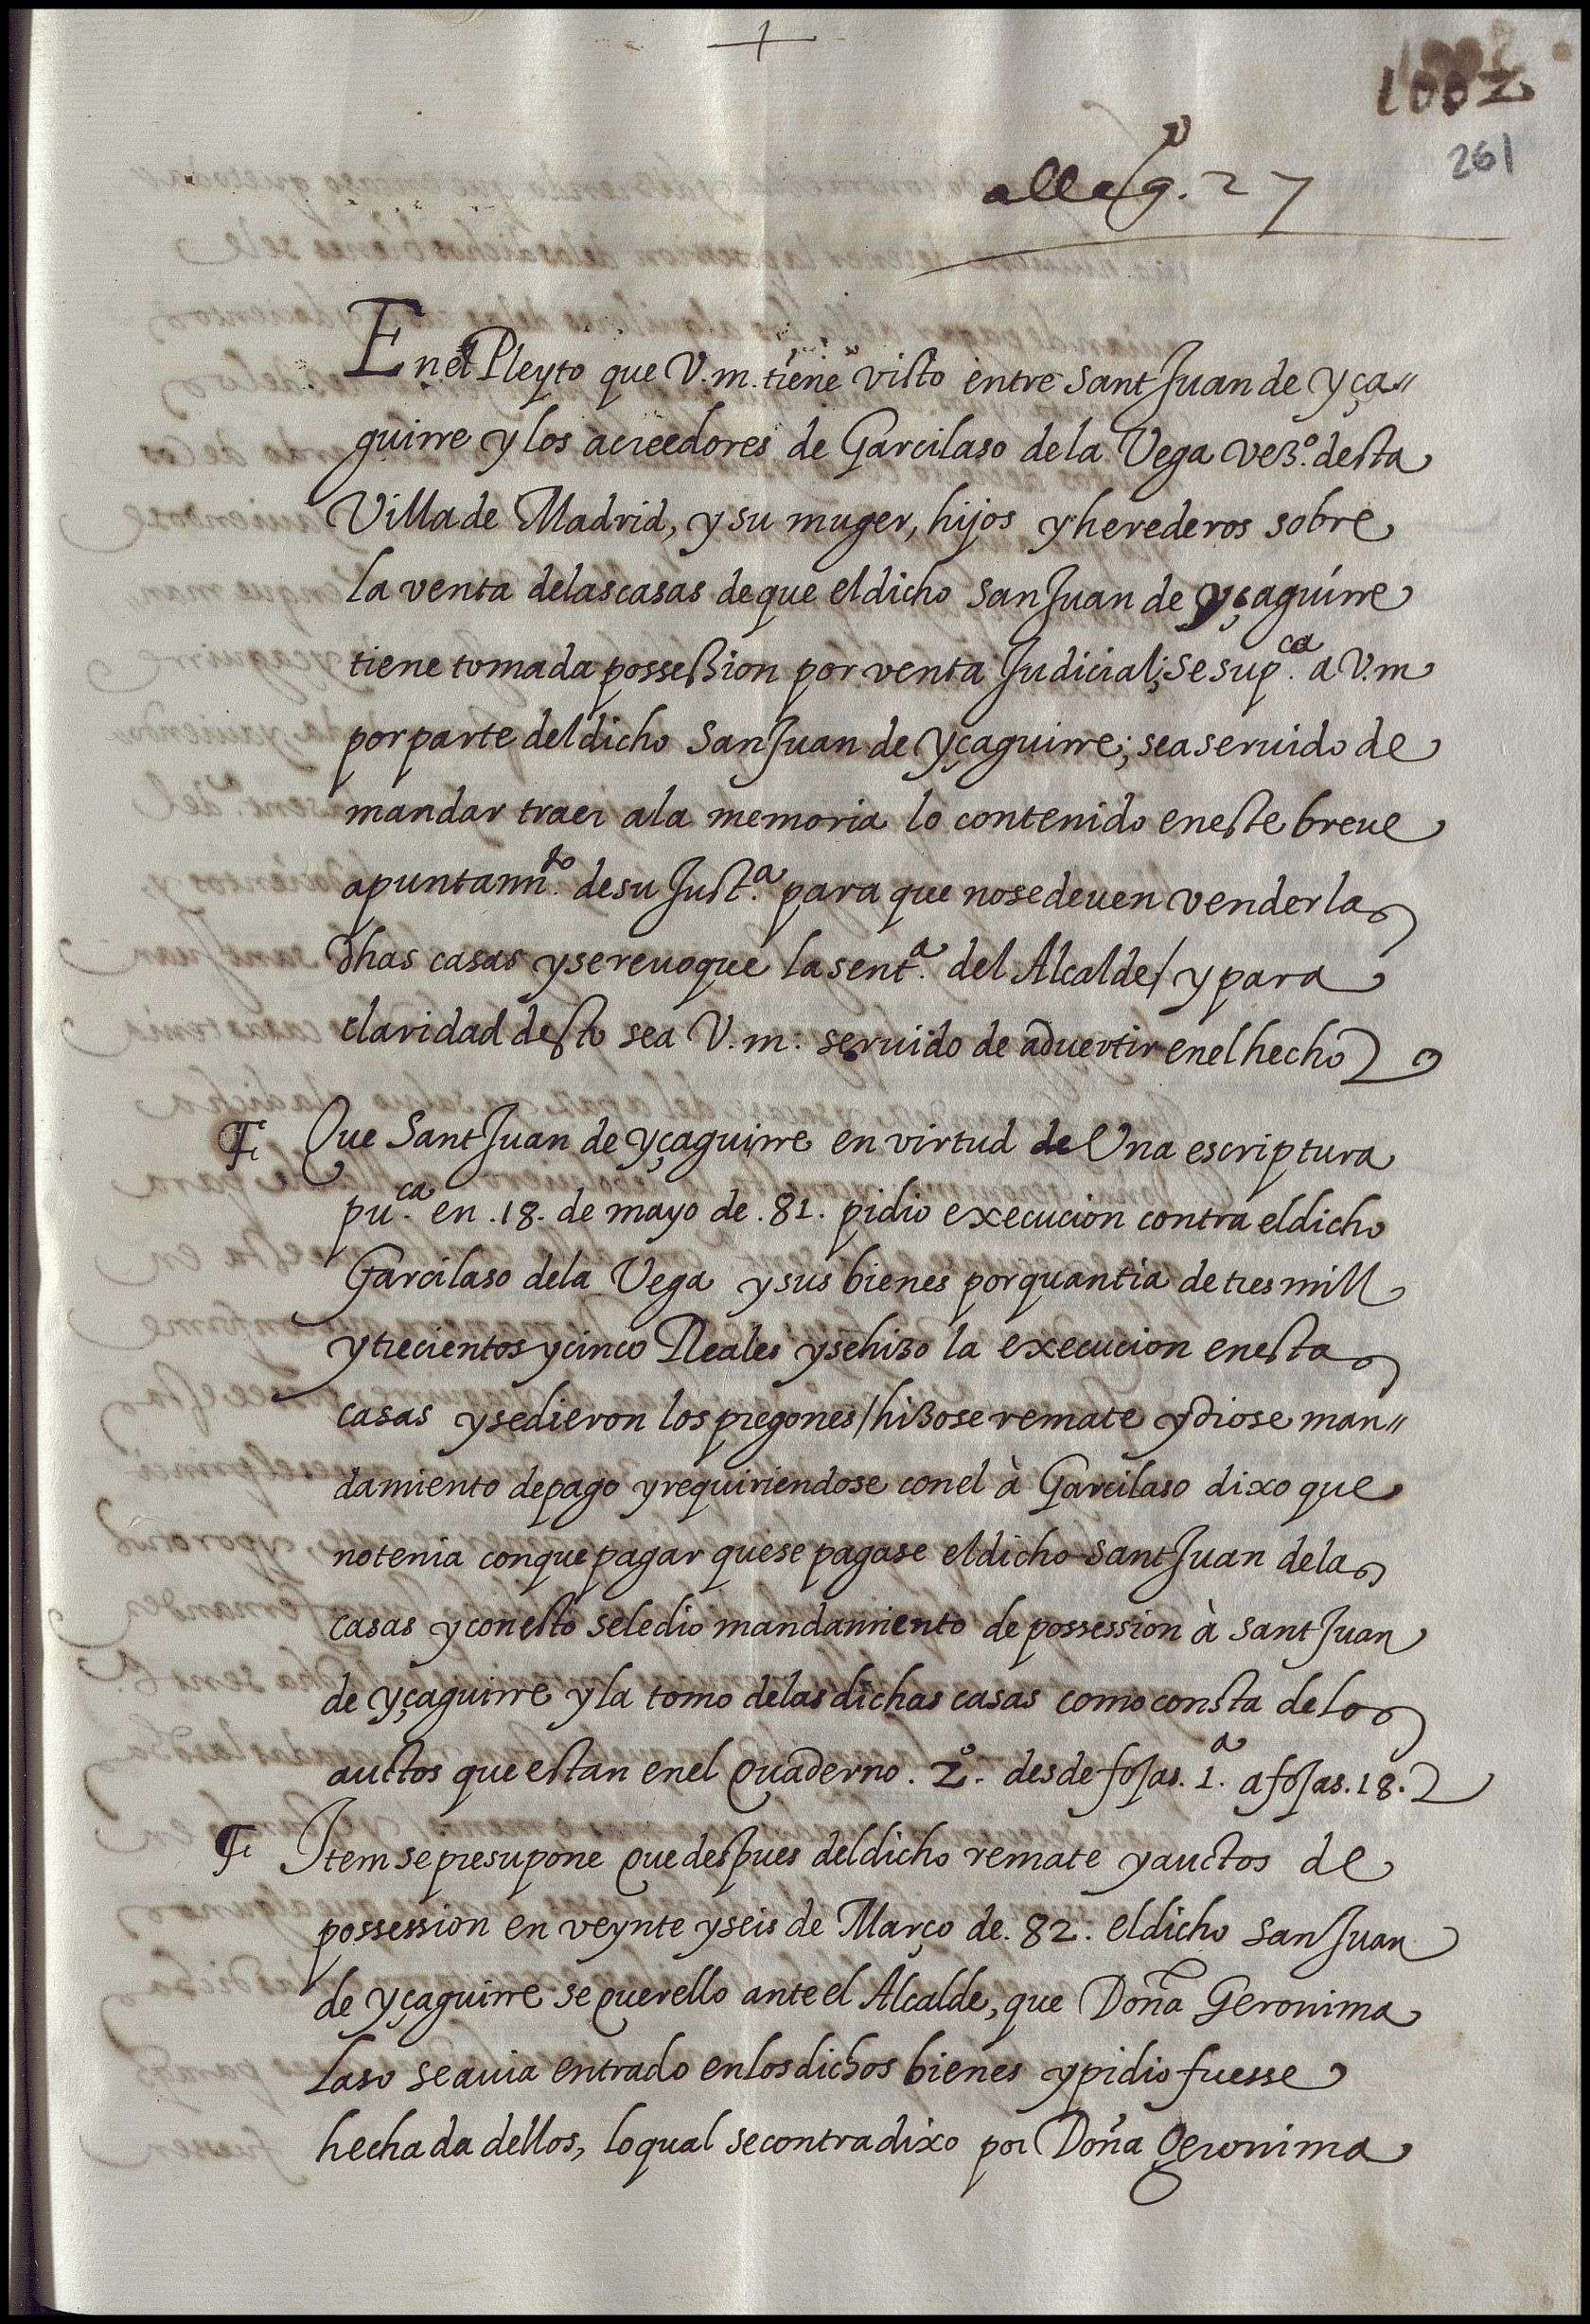 1002
261
alleg.º 27
En el Pleyto que V.m. tiene visto entre Sant Juan de Yça〃
guirre y los acreedores de Garcilaso de la Vega vez.º desta
Villa de Madrid, y su muger, hijos y herederos sobre
la venta delas casas de que el dicho San Juan de Yçaguirre
tiene tomada possession por venta Judicial; se sup.ca a V.m
por parte del dicho San Juan de Yçaguirre; sea seruido de
mandar traer ala memoria lo contenido eneste breue
apuntami.to de su Just.a para que nose deuen vender las
dhas casas y se reuoque la sent.a del Alcalde / y para
claridad desto sea V.m. seruido de aduertir enel hecho
Que Sant Juan de Yçaguirre en virtud de Una escriptura
pu.ca en .18. de mayo de .81. pidio execucion contra el dicho
Garcilaso dela Vega y sus bienes por quantia de tres mill
y trecientos y cinco Reales y se hizo la execucion enestas
casas y se dieron los pregones / hizose remate y diose man〃
damiento de pago y requiriendose con el à Garcilaso dixo que
no tenia con que pagar quese pagase el dicho Sant Juan de las
casas y con esto sele dio mandamiento de possession à Sant Juan
de Yçaguirre y la tomo delas dichas casas como consta de los
auctos que estan enel Quaderno .2º. desde fojas .1.a a fojas .18.
Item se presupone Que despues del dicho remate y auctos de
possession en veynte y seis de Março de .82. el dicho San Juan
de Yçaguirre se querello ante el Alcalde, que Doña Geronima
Laso se auia entrado en los dichos bienes y pidio fuesse
hechada dellos, lo qual se contradixo por Doña Geronima